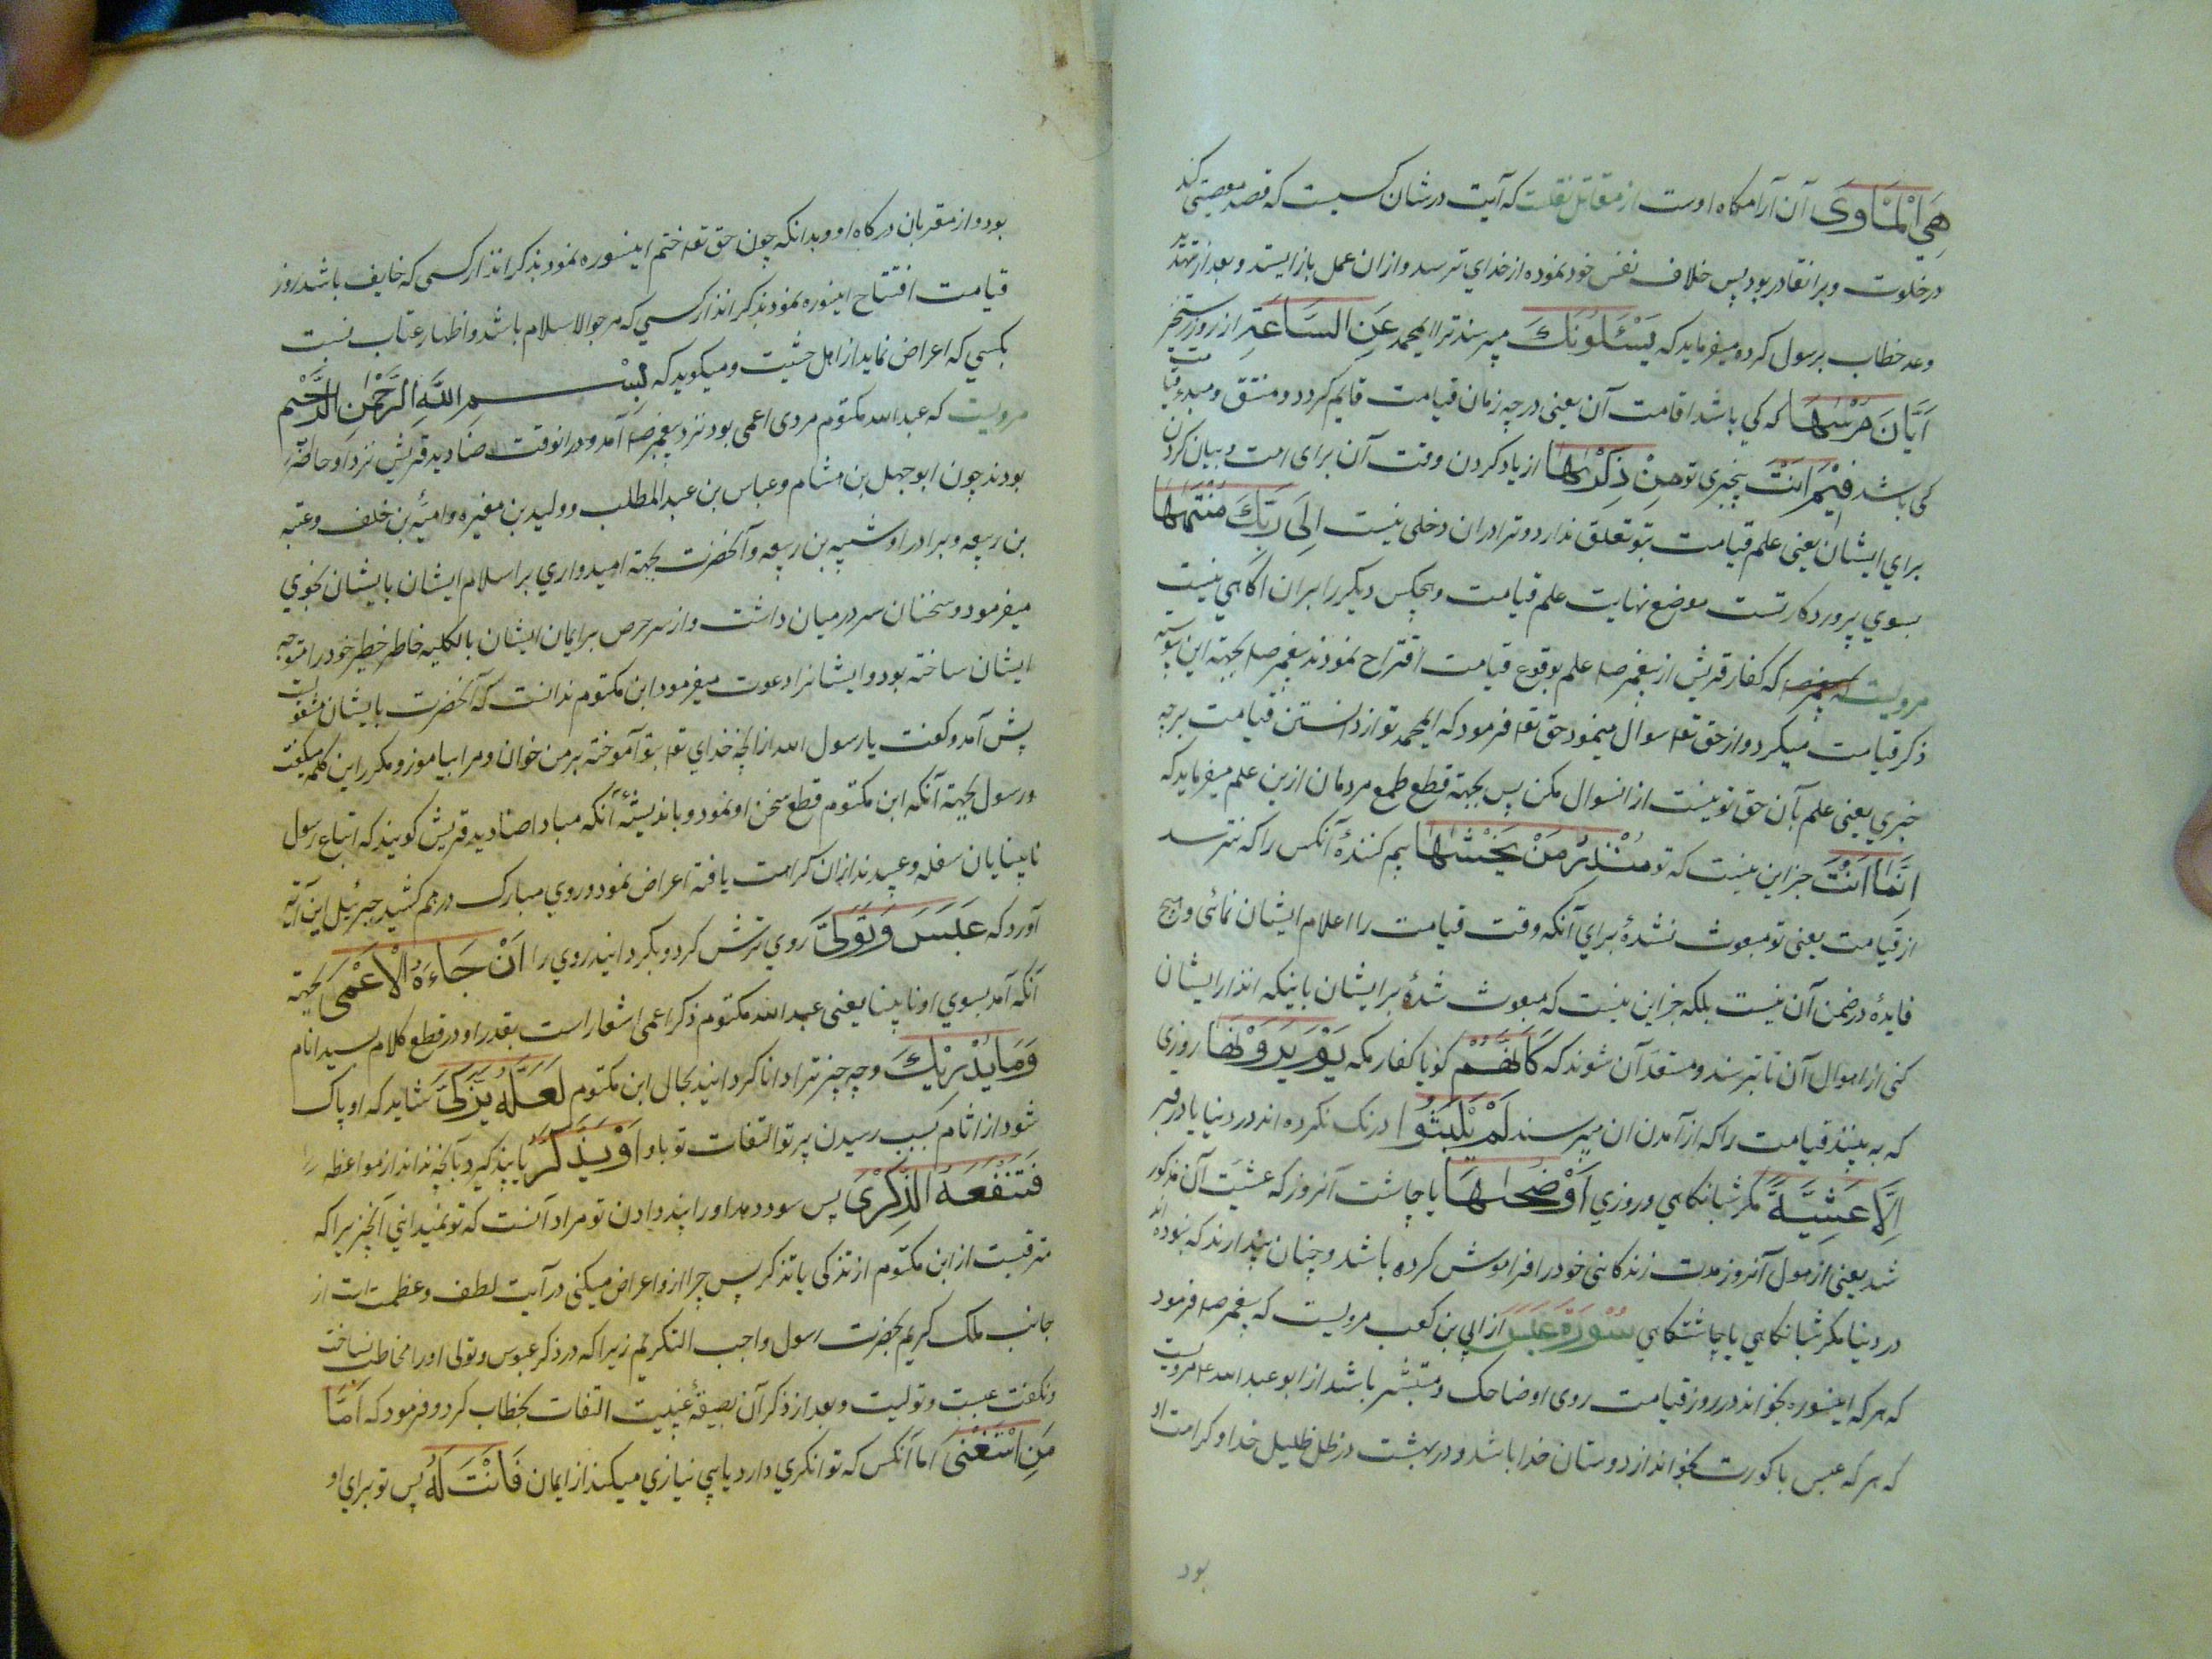 هِیَ الْمَأْوَی آن آرامکاه اوست از مقاتل نقلست که آیت در شان کسیست که قصد معصیتی کند
در خلوت و بر انقادر بود پس خلاف نفس خود نموده از خدای ترسد و از ان عمل باز ایستد و بعد از تهدید
وعد خطاب برسول کرده میفرماید که یَسْئَلُونَكَ میپرسند ترا ای محمد عَنِ السَّاعَةِ از روز رستخیز
اَیَّانَ مُرْسٰهَا که کی باشد اقامت آن یعنی در چه زمان قیامت قایم کردد و منتهی و مبدء قیامت
کی باشد فِیْمَ اَنْتَ بیخبری تو مِنْ ذِکْرٰهَا از یاد کردن وقت آن برای امت و بیان کردن
برای ایشان یعنی علم قیامت بتو تعلق ندارد و ترا دران دخلی نیست اِلَی رَبِّكَ مُنْتَهٰهَا
بسوی پروردکار تست موضع نهایت علم قیامت و هیچکس دیکر را بران اکاهی نیست
مرویست که کفار قریش از پیغمبر صلعم علم بوقوع قیامت اقتراح نمودند پیغمبر صلعم بجهة این پیوسته
ذکر قیامت میکرد و از حق تع سوال مینمود حق تع فرمود که ای محمد تو از دانستن قیامت بر چه
خبری یعنی علم بآن حق تو نیست از ان سوال مکن پس بجهة قطع طمع مردمان ازین علم میفرماید که
اِنَّمَا اَنْتَ جز این نیست که تو مُنْذِرُ مَنْ یَخْشٰهَا بیم کنندهٔ آنکس را که بترسد
از قیامت یعنی تو مبعوث نشدهٔ برای آنکه وقت قیامت را اعلام ایشان نمائی و هیچ
فایدهٔ در ضمن آن نیست بلکه جز این نیست که مبعوث شدهٔ بر ایشان باینکه انذار ایشان
کنی از اهوال آن تا بترسند و مستعد آن شوند که کَاَنَّهُمْ کویا کفار مکه یَوْمَ یَرَوْنَهَا روزی
که به بینند قیامت را که از آمدن ان میپرسند لَمْ یَلْبَثُوا درنک نکرده اند در دنیا یا در قبر
اِلَّا عَشِیَّةً مکر شبانکاهی و روزی اَوْ ضُحٰهَا یا چاشت آنروز که عشیت آن مذکور
شد یعنی از هول آنروز مدت زندکانی خود را فراموش کرده باشند و چنان پندارند که نبوده اند
در دنیا مکر شبانکاهی یا چاشتکاهی سُوْرَةُ عَبَسَ از ابی بن کعب مرویست که پیغمبر صلعم فرمود
که هر که اینسوره بخواند در روز قیامت روی او ضاحک و مستبشر باشد از ابو عبد الله ع مرویست
که هر که عبس با کورت بخواند از دوستان خدا باشد و در بهشت در ظل ظلیل خدا و کرامت او
بود
بود و از مقربان درکاه او و بدانکه چون حق تع ختم اینسوره نمود بذکر انذار کسی که خایف باشد از روز
قیامت افتتاح اینسوره نمود بذکر انذار کسی که مرجو الاسلام باشد و اظهار عتاب نسبت
بکسی که اعراض نماید از اهل خشیت و میکوید که بِسْمِ اللّٰهِ الرَّحْمٰنِ الرَّحِیْمِ
مرویست که عبد الله مکتوم مردی اعمی بود نزد پیغمبر صلعم آمد و در انوقت صنادید قریش نزد او حاضر
بودند چون ابو جهل بن هشام و عباس بن عبد المطلب و ولید بن مغیره و امیّه بن خلف و عتبه
بن ربیعه و برادر او شیبه بن ربیعه و آنحضرت بجهة امیدواری بر اسلام ایشان بایشان نجوی
میفرمود و سخنان سر در میان داشت و از سر حرص بر ایمان ایشان بالکلیه خاطر خطیر خود را متوجه
ایشان ساخته بود و ایشانرا دعوت میفرمود ابن مکتوم ندانست که آنحضرت بایشان مشغولست
پیش آمد و کفت یا رسول الله از انچه خدای تع بتو آموخته بر من خوان و مرا بیاموز و مکرر این کلمه میکفت
و رسول بجهة آنکه ابن مکتوم قطع سخن او نمود و باندیشهٔ آنکه مبادا صنادید قریش کویند که اتباع رسول
نابینایان سفله و عبید نداز ان کراهت یافته اعراض نمود و روی مبارک درهم کشید جبرئیل این آیة
آورد که عَبَسَ وَتَوَلّٰی روی ترش کرد و بکردانید روی را اَنْ جَاءَهُ الْاَعْمٰی بجهة
آنکه آمد بسوی او نابینا یعنی عبد الله مکتوم ذکر اعمی اشعار است بقدر او در قطع کلام سید انام
وَمَا یُدْرِیْكَ و چه چیز ترا دانا کردانید بحال ابن مکتوم لَعَلَّهُ یَزَّکّٰی شاید که او پاک
شود از اثام بسبب رسیدن پرتو التفات تو باو اَوْ یَذَّکَّرُ یا پند کیرد بآنچه نداند از مواعظ
فَتَنْفَعَهُ الذِّکْرٰی پس سود دهد او را پند دادن تو مراد آنست که تو نمیدانی آنچیز را که
مترقبست از ابن مکتوم از تزکی یا تذکر پس چرا ازو اعراض میکنی در آیت لطف و عظمت است از
جانب ملک کریم بحضرت رسول واجب التکریم زیرا که در ذکر عبوس و تولی او را مخاطب نساخت
و نکفت عبست و تولیت و بعد از ذکر آن بصیغهٔ غیبت التفات بخطاب کرد و فرمود که اَمَّا
مَنِ اسْتَغْنٰی اما آنکس که توانکری دارد یا بی نیازی میکند از ایمان فَاَنْتَ لَهُ پس تو برای او